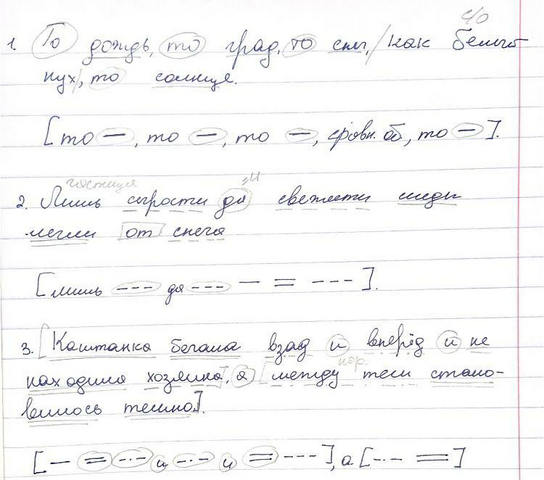 с/о
1. То дождь, то град, то снег, как белый
пух, то солнце.
[то —, то —, то —, сравн. об, то —].
частица =и
2. Лишь сырости да свежести следы
легли от снега
[лишь --- да --- — = ---].
3. [Каштанка бегала взад и вперёд и не
нар.
находила хозяина], а [между тем стано-
вилось темно].
[— = -.- и -.- и = ---], а [-.- =]